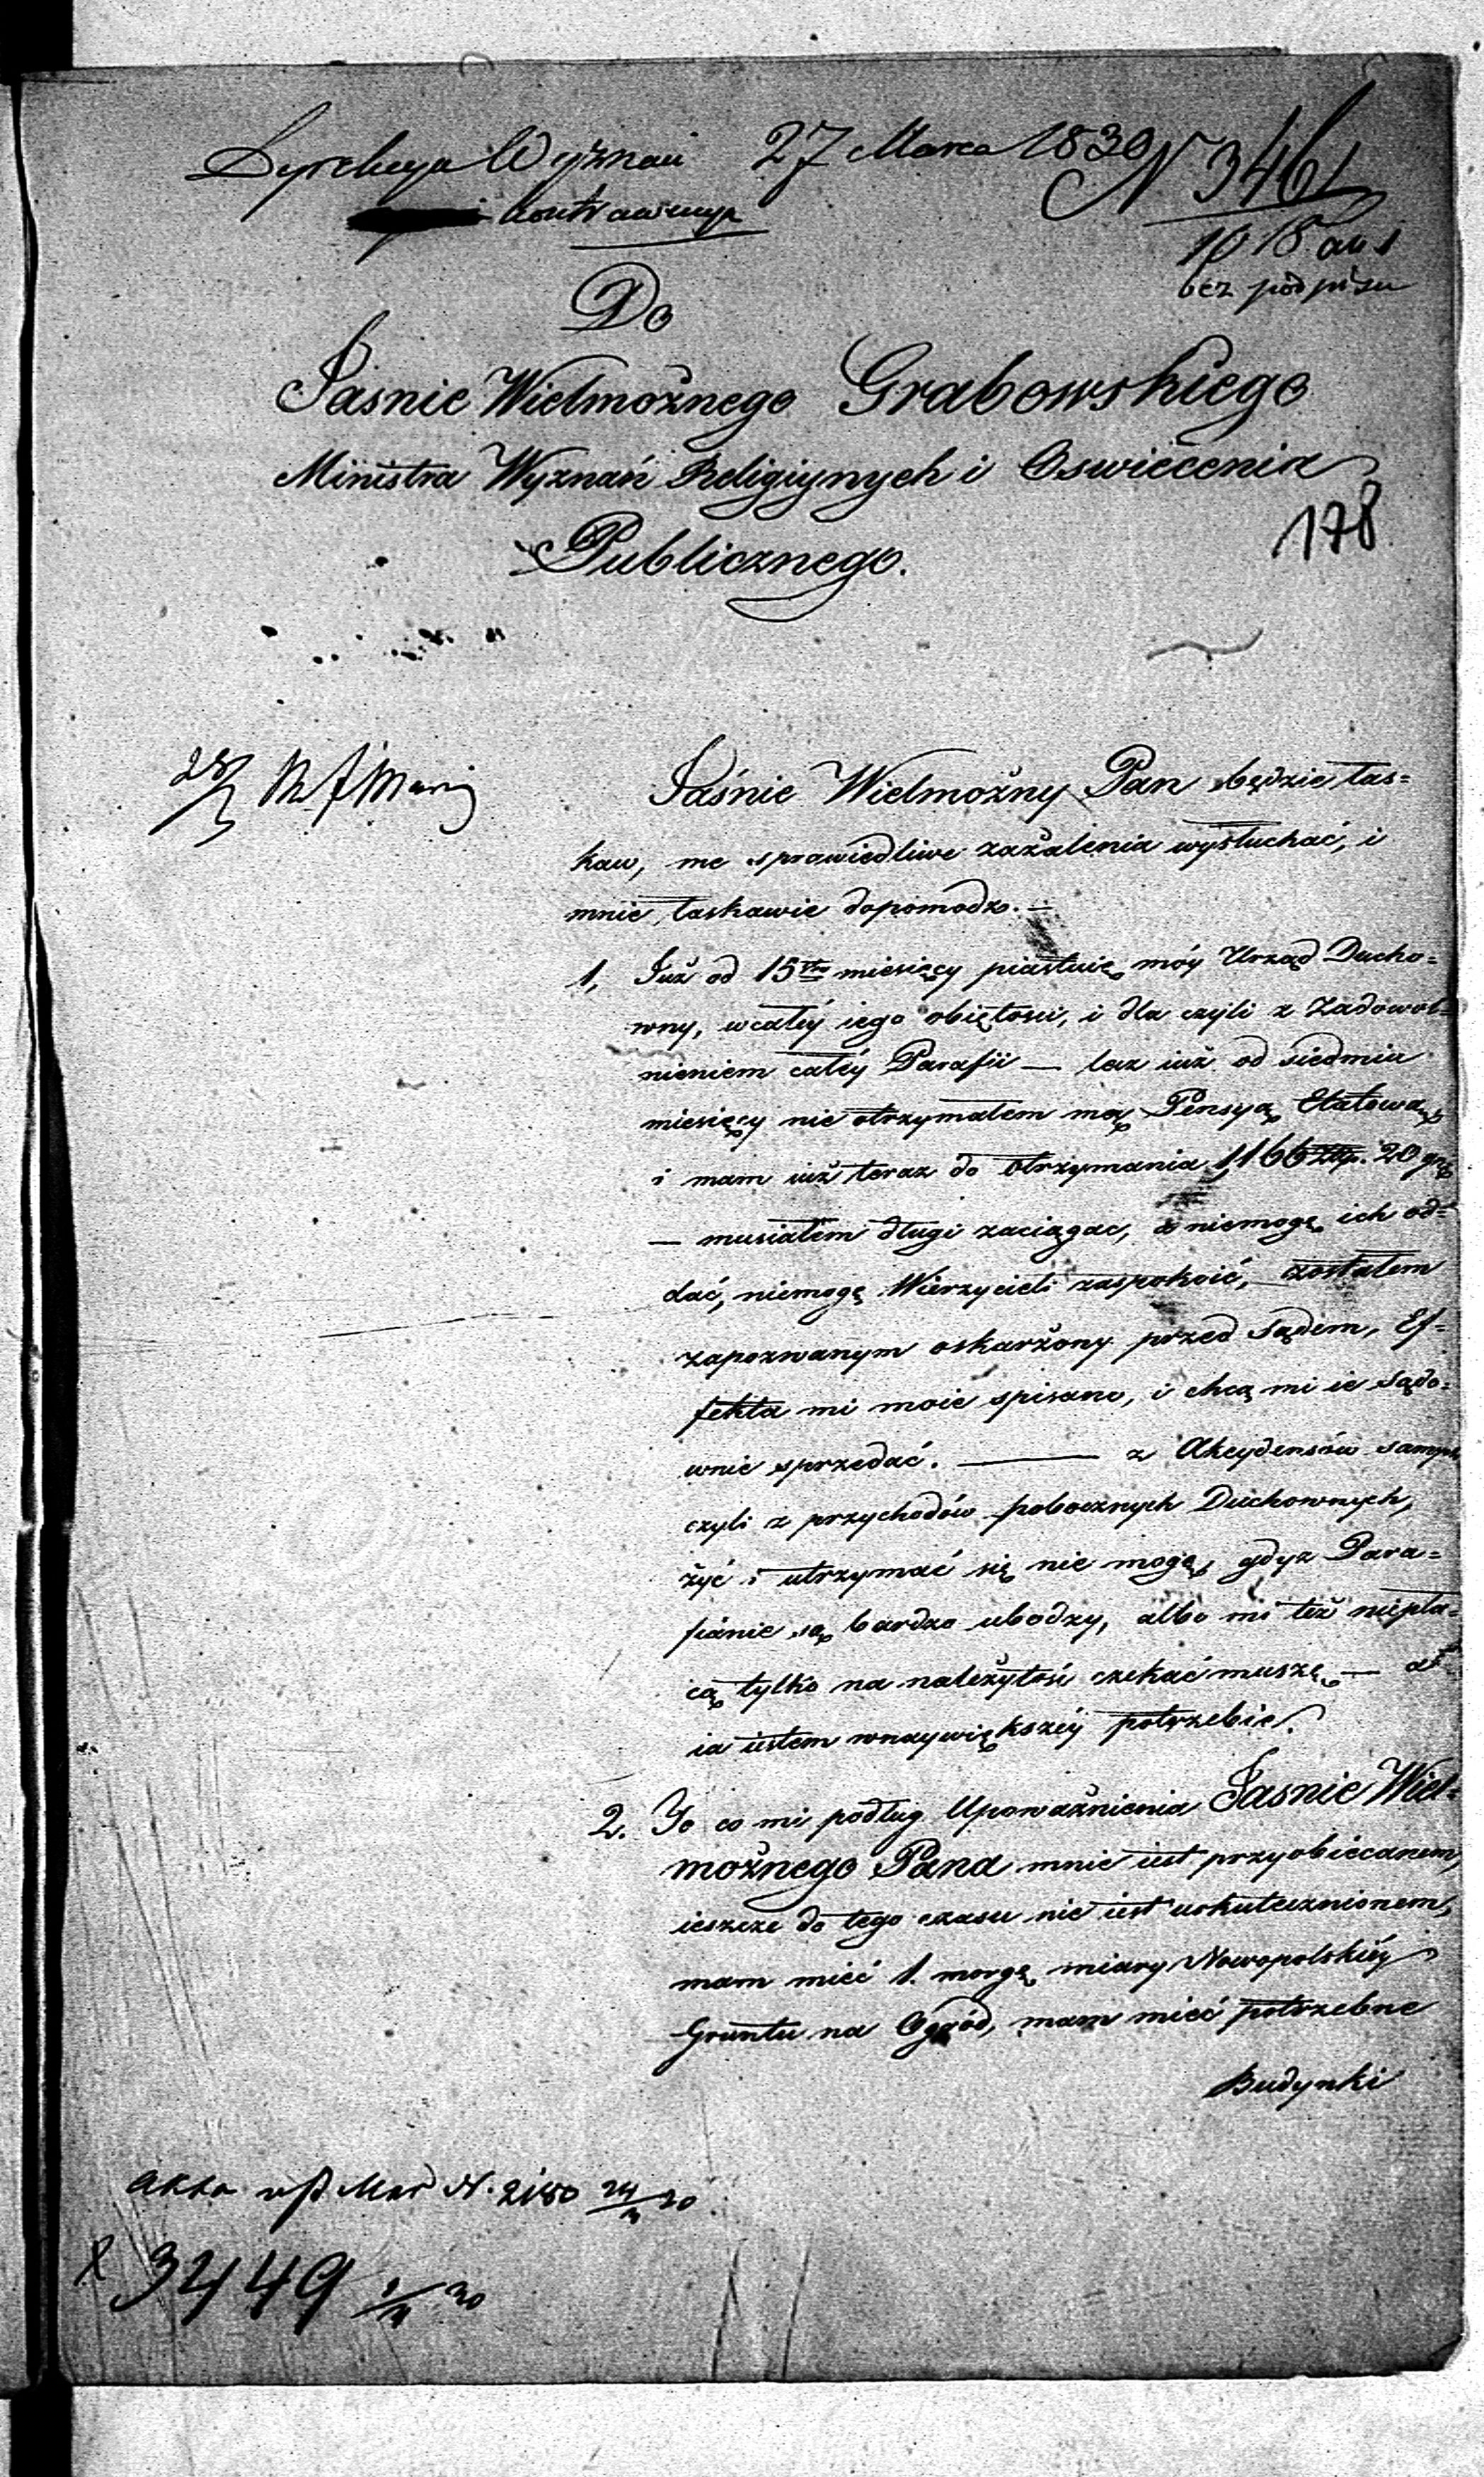 Dyrekcya Wyznań 27 Marca 1830 N 3461
kontrasemp
10 18
bez podpisu
Do
Jasnie Wielmożnego Grabowskiego
Ministra Wyznań Religiynych i Oswiecenia
178
Publicznego.
28/3
Jaśnie Wielmożny Pan będzie łas=
kaw, me sprawiedliwe zażalenia wysłuchać, i
mnie, łaskawie dopomodz. —
1, Już od 15stu miesięcy piastuię móy Urząd Ducho=
wny, wcałéy iego obiętosci, i dla czyli z Zadowol=
nieniem całéy Parafii — lecz iuż od siedmiu
miesięcy nie otrzymałem mą Pensyą Etatową,
i mam iuż teraz do otrzymania 1,166 Złp. 20 gr
— musiałem długi zaciągac, a niemogę ich od=
dać, niemogę Wierzycieli zaspokoić, zostałem
zapozwanym oskarżony przed Sądem, Ef=
fekta mi moie spisano, i chcą mi ie sądo=
wnie sprzedać. — z Akcydensów samych
czyli z przychodów pobocznych Duchownych,
żyć i utrzymać się nie mogę, gdyz Para=
fianie są bardzo ubodzy, albo mi też niepła=
cą tylko na należytość czekać muszę — a
ia iestem wnaywiększéy potrzebie.
2. To co mi podług Upoważnienia Jasnie Wiel=
możnego Pana mnie iest przyobiecanem,
ieszcze do tego czasu nie iest uskutecznionem,
mam mieć 1. morgę miary Nowopolskiéy
Gruntu na Ogród, mam mieć potrzebne
Budynki
akta N. 2180 24/3 30
3449 1/4 30